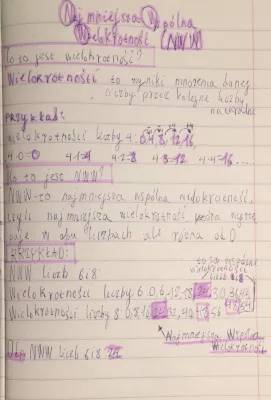 Najmniejsza Wspólna
Wielokrotność (NWW)
Co to jest wielokrotność?
Wielokrotności to wyniki mnożenia danej
liczby przez kolejne liczby
naturalne
PRZYKŁAD:
Wielokrotności liczby 4: 0,4,8,12,16,
4·0=0 4·1=4 4·2=8 4·3=12 4·4=16...
Co to jest NWW?
NWW-to najmniejsza wspólna wielokrotność,
czyli najmniejsza wielokrotność która wystę
puje w obu liczbach ale różna od 0
PRZYKŁAD:
NWW liczb 6 i 8
to są wspólne
wielokrotności
liczb 6 i 8
Wielokrotności liczby 6: 0,6,12,18,24,30,36,42
Wielokrotności liczby 8: 0,8,16,24,32,40,48,56
Najmniejsza Wspólna
Wielokrotność
NWW liczb 6 i 8 24